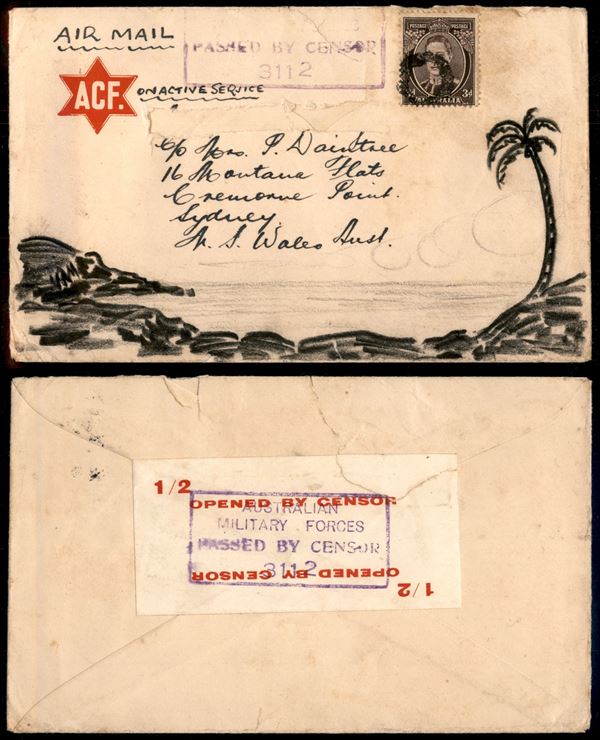 AIR MAIL
PASSED BY CENSOR
3112
POSTAGE POSTAGE
3d
AUSTRALIA
ACF.
ON ACTIVE SERVICE
c/o Mrs. P. Daintree
16 Montana Flats
Cremorne Point.
Sydney
N. S. Wales Aust.
1/2
OPENED BY CENSOR
AUSTRALIAN
MILITARY FORCES
PASSED BY CENSOR
3112
OPENED BY CENSOR
1/2